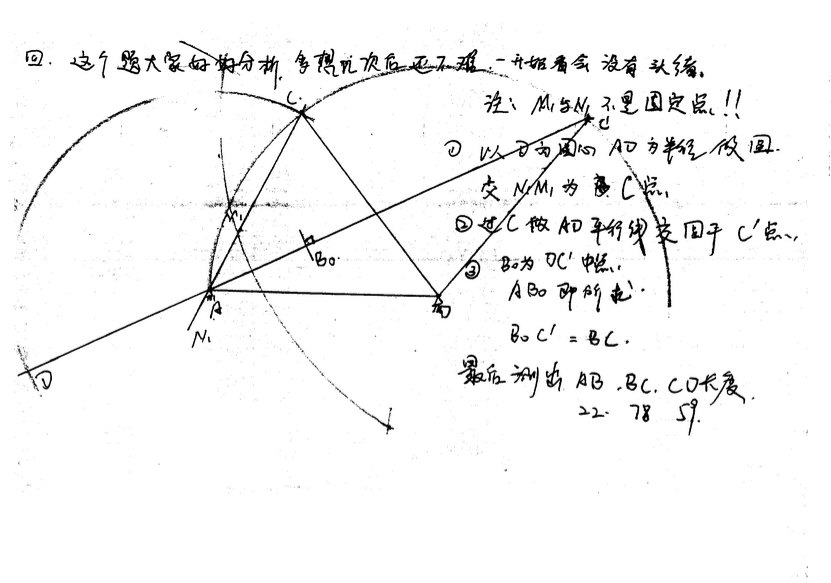 四. 这个题大家好好分析, 多想几次后还不难. 一开始看会没有头绪。
注: M₁与N₁不是固定点!!
C.
C'
① 以D为圆心 AD为半径做圆.
交N₁M₁为 C点.
M₁
② 过C做AD平行线交圆于 C'点.
B₀
③ B₀为DC'中点.
AB₀即所求.
A
D
N₁
B₀C' = BC.
D
最后测出 AB. BC. CD长度.
22. 78 59.